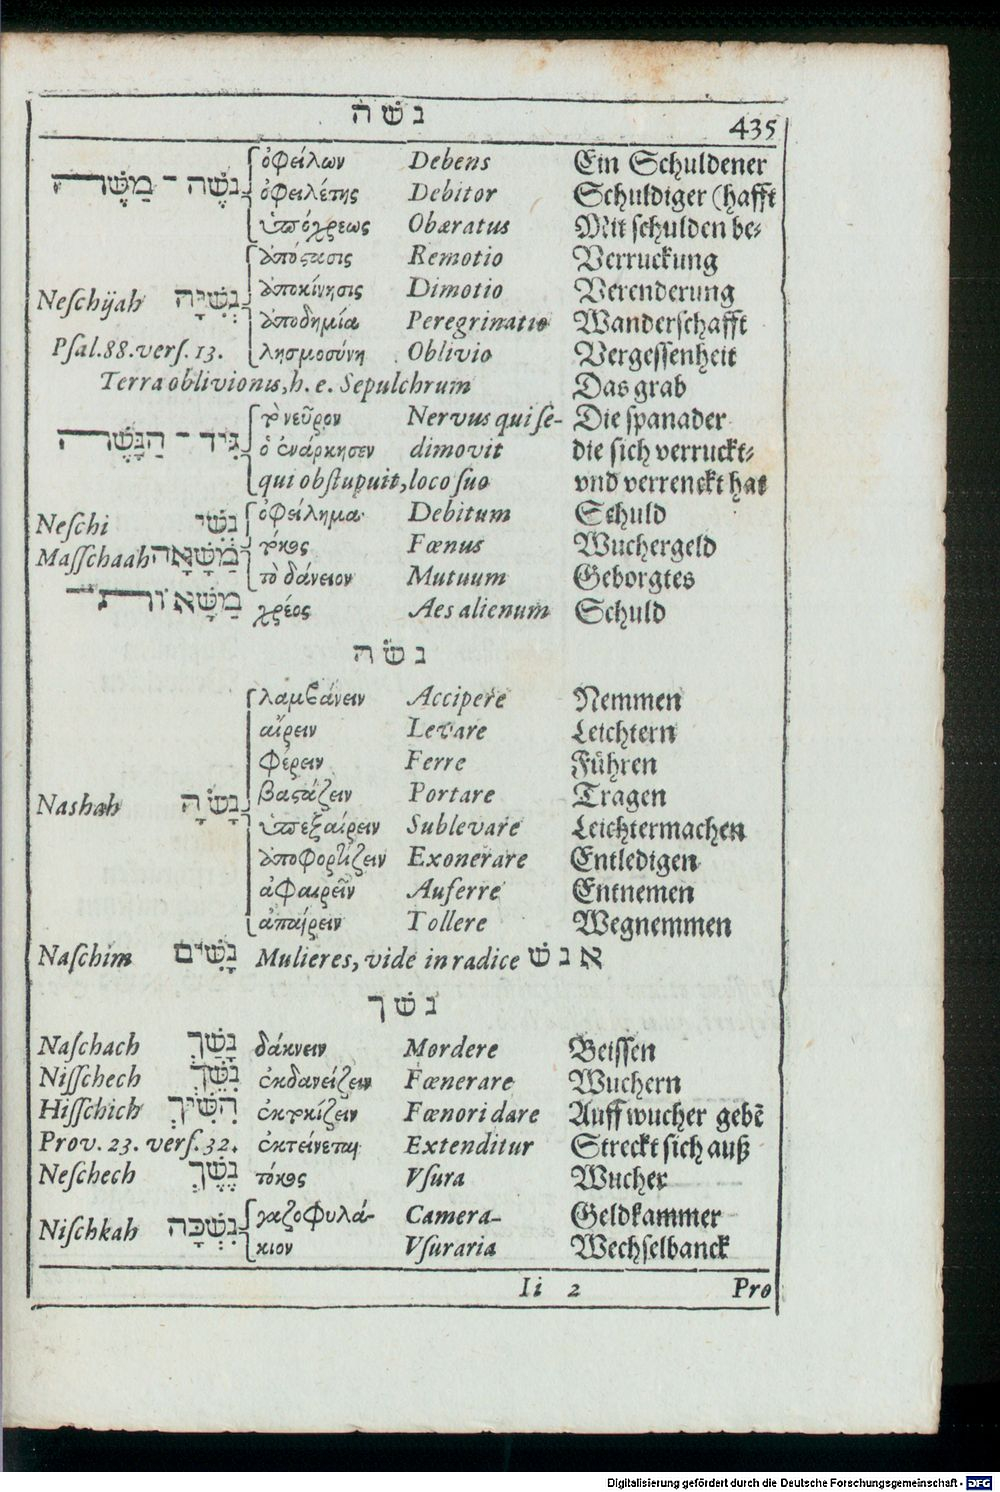 נשׁה
435
נֹשֶׁה - מַשֶּׁה ὀφείλων Debens Ein Schuldener
ὀφειλέτης Debitor Schuldiger (hafft
ὑπόχρεως Obæratus Mit schulden be-
ἀπόστασις Remotio Verruckung
Neſchijah נְשִׁיָּה ἀποκίνησις Dimotio Verenderung
ἀποδημία Peregrinatio Wanderschafft
Pſal. 88. verſ. 13. λησμοσύνη Oblivio Vergessenheit
Terra oblivionis, h. e. Sepulchrum Das grab
τὸ νεῦρον Nervus qui ſe- Die spanader
גִּיד - הַנָּשֶׁה ὁ ἐνάρκησεν dimovit die sich verruckt-
qui obſtupuit, loco ſuo vnd verrenckt hat
Neſchi נְשִׁי ὀφείλημα Debitum Schuld
Maſſchaah מַשָּׁאָה τόκος Fœnus Wuchergeld
τὸ δάνειον Mutuum Geborgtes
מַשָּׁאוֹת χρέος Aes alienum Schuld
נשׂה
λαμβάνειν Accipere Nemmen
αἴρειν Levare Leichtern
φέρειν Ferre Führen
Nashah נָשָׂה βαστάζειν Portare Tragen
ὑπεξαίρειν Sublevare Leichtermachen
ἀποφορτίζειν Exonerare Entledigen
ἀφαιρεῖν Auferre Entnemen
ἀπαίρειν Tollere Wegnemmen
Naſchim נָשִׁים Mulieres, vide in radice אנשׁ
נשׁך
Naſchach נָשַׁךְ δάκνειν Mordere Beissen
Niſſchech נִשֵּׁךְ ἐκδανείζειν Fœnerare Wuchern
Hiſſchich הִשִּׁיךְ ἐκτοκίζειν Fœnori dare Auff wucher gebē
Prov. 23. verſ. 32. ἐκτείνεται Extenditur Streckt sich auß
Neſchech נֶשֶׁךְ τόκος Vſura Wucher
Niſchkah נִשְׁכָּה γαζοφυλά- Camera- Geldkammer
κιον Vſuraria Wechselbanck
Ii 2 Pro
Digitalisierung gefördert durch die Deutsche Forschungsgemeinschaft - DFG